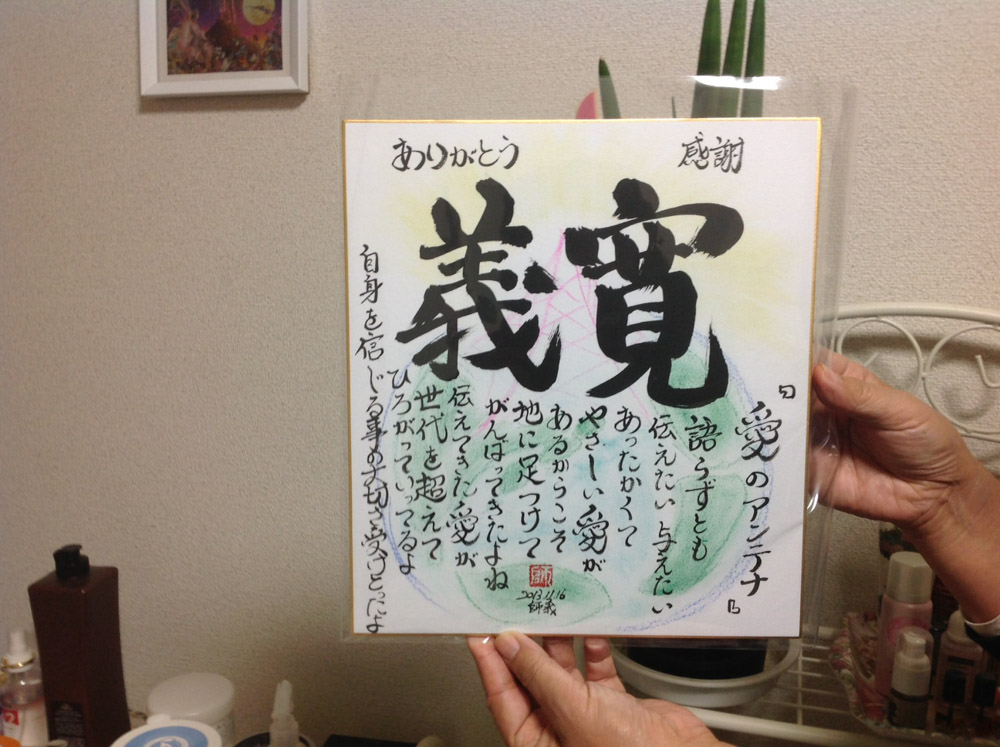 感謝
ありがとう
寛義
『愛のアンテナ』
語らずとも
伝えたい 与えたい
あったかくて
やさしい愛が
あるからこそ
地に足つけて
がんばってきたよね
伝えてきた愛が
世代を超えて
ひろがっていってるよ
自身を信じる事の大切さ受けとったよ
2013.11.16